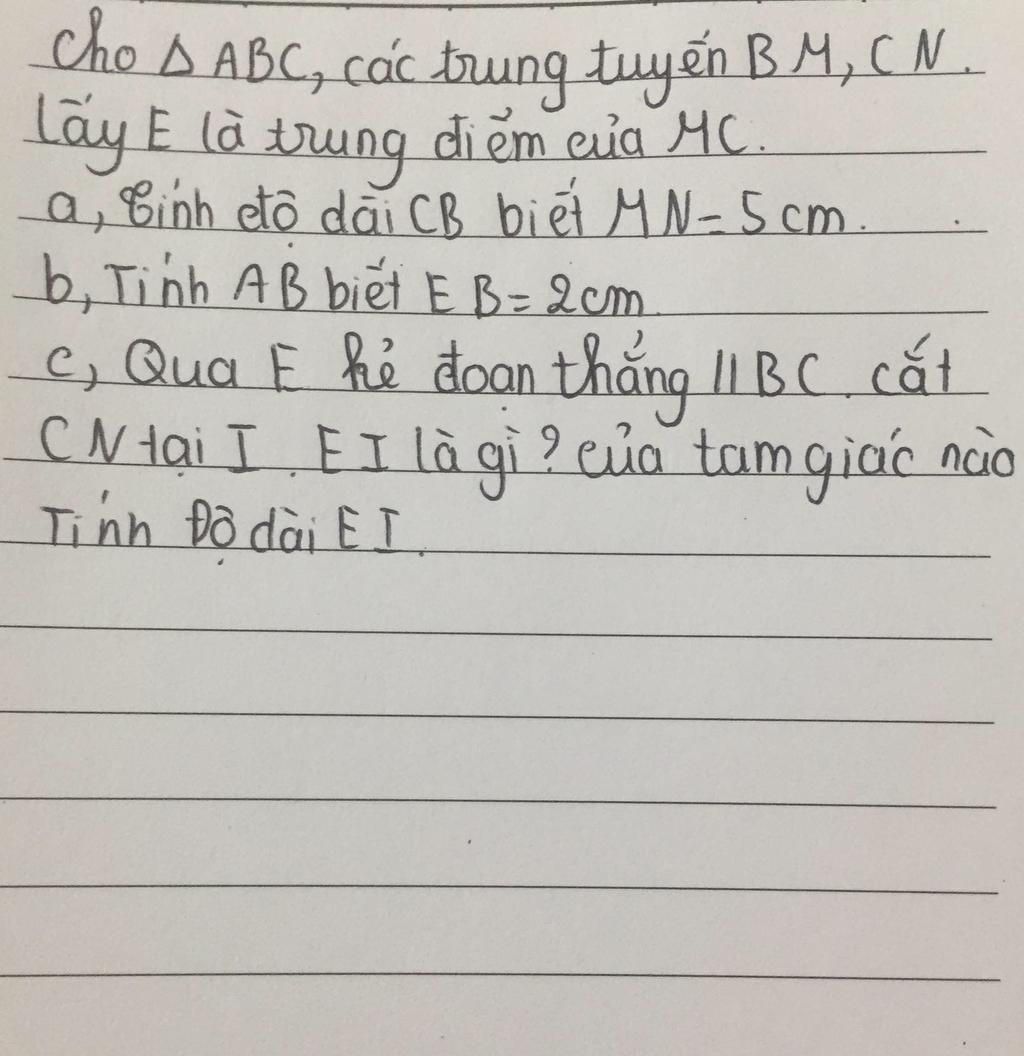 Cho Δ ABC, các trung tuyến BM, CN.
Lấy E là trung điểm của MC.
a, Tính độ dài CB biết MN = 5 cm.
b, Tính AB biết EB = 2cm.
c, Qua E kẻ đoạn thẳng // BC. cắt
CN tại I. EI là gì? của tam giác nào
Tính Độ dài EI.